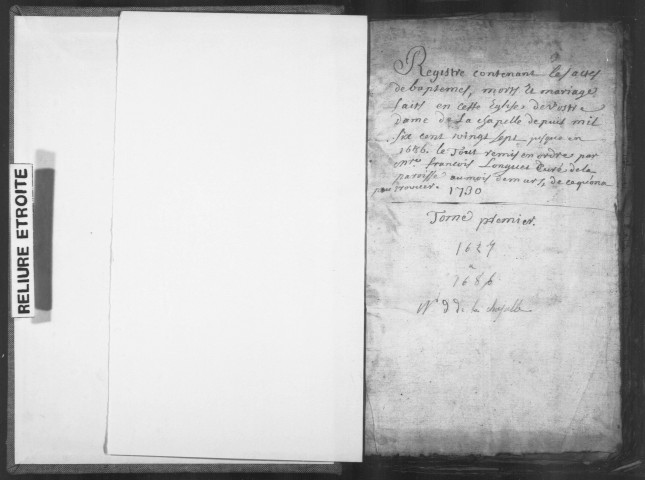 RELIURE ETROITE
Registre contenant les actes
de baptemes, morts et mariages
faits en cette Eglise de nostre
dame de La chapelle depuis mil
six cent vingt sept jusque en
1686. le Tout remis en ordre par
francois Longues Curé de la
paroisse au mois de mars, de ce qu'on a
peu trouver 1730
Tome premier.
1627
a
1686
N. D. de la chapelle